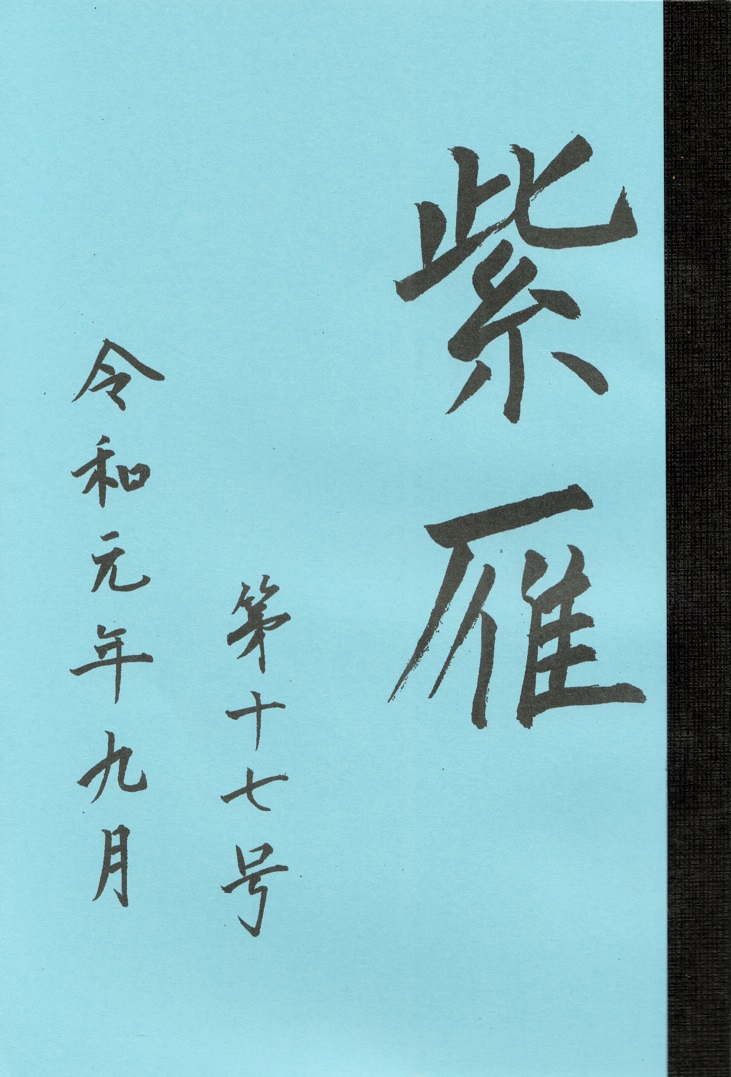 紫雁
第十七号
令和元年九月